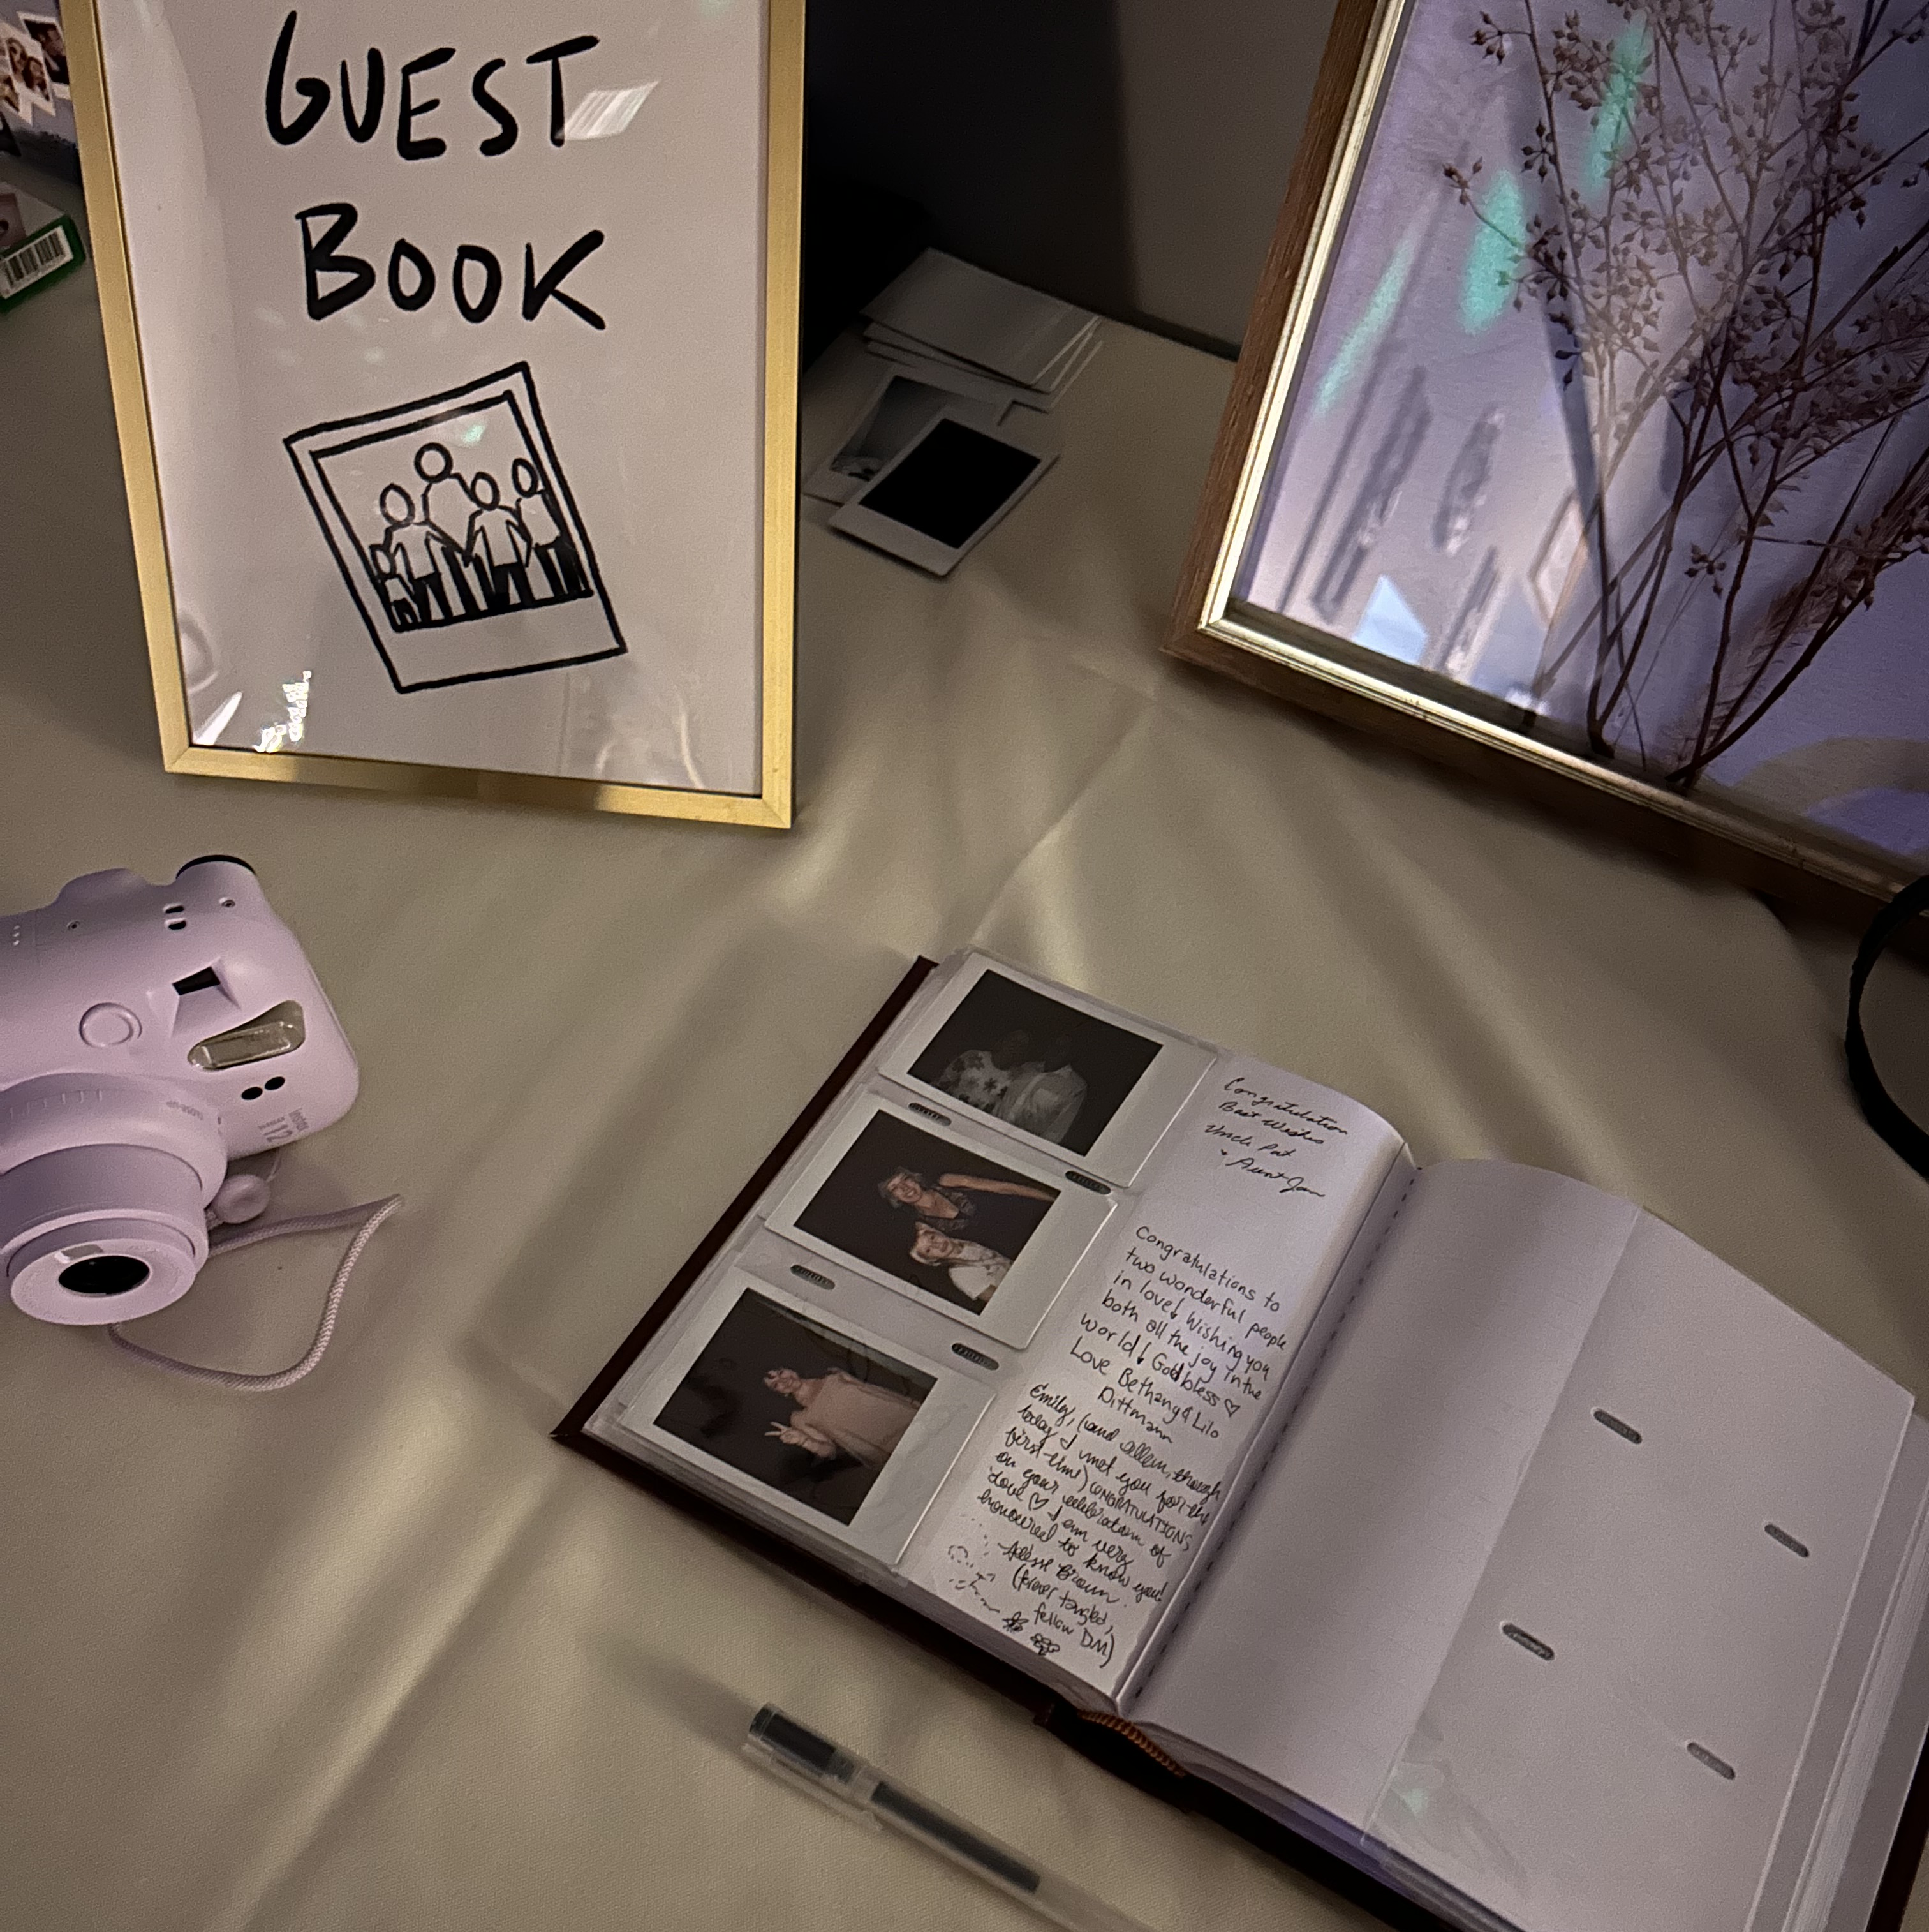 GUEST
BOOK
instax
12
Congratulation
Best Wishes
Uncle Pat
+ Aunt Jan
Congratulations to
two wonderful people
in love! Wishing you
both all the joy in the
world! God bless ♡
Love Bethany & Lilo
Dittmann
Emily, (and Allem, though
today I met you for the
first time) CONGRATULATIONS
on your celebration of
love ♡ I am very
honoured to know you!
Brown
(forever tangled,
fellow DM)